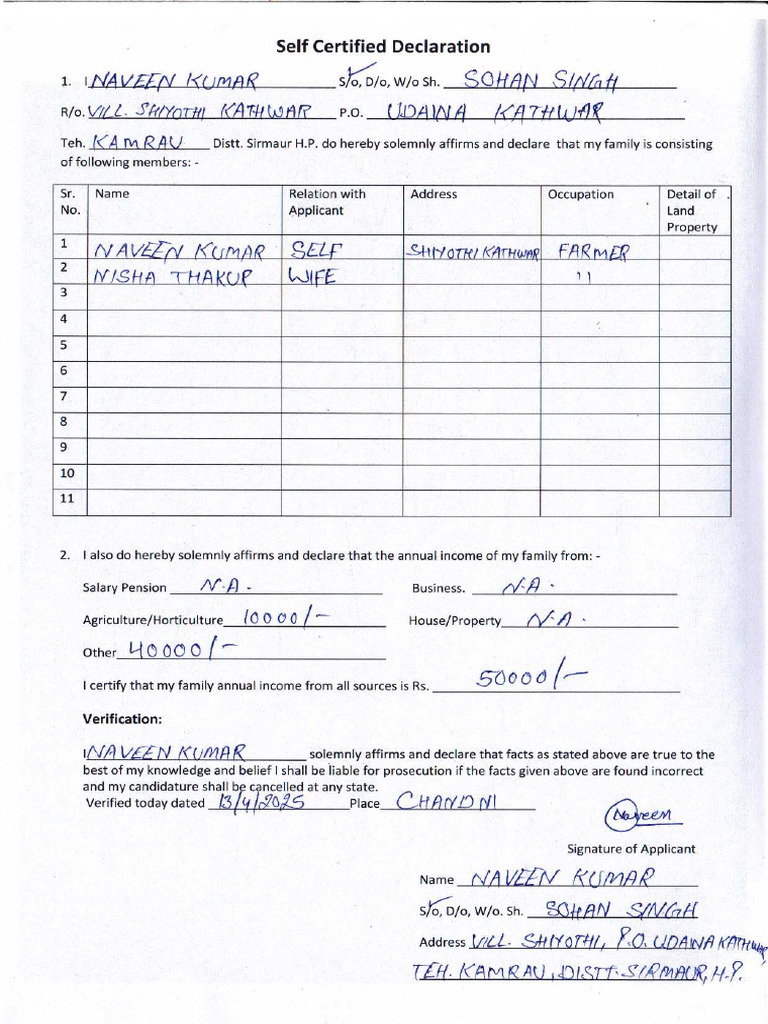 Self Certified Declaration
1. I NAVEEN KUMAR S/o, D/o, W/o Sh. SOHAN SINGH
R/o. VILL. SHIYOTHI KATHWAR P.O. UDAINA KATHWAR
Teh. KAMRAU Distt. Sirmaur H.P. do hereby solemnly affirms and declare that my family is consisting
of following members: -
Sr. No. Name Relation with Applicant Address Occupation Detail of Land Property
1 NAVEEN KUMAR SELF SHIYOTHI KATHWAR FARMER
2 NISHA THAKUR WIFE 11
3
4
5
6
7
8
9
10
11
2. I also do hereby solemnly affirms and declare that the annual income of my family from: -
Salary Pension N.A. Business. N.A.
Agriculture/Horticulture 10000/- House/Property N.A.
Other 40000/-
I certify that my family annual income from all sources is Rs. 50000/-
Verification:
I NAVEEN KUMAR solemnly affirms and declare that facts as stated above are true to the
best of my knowledge and belief I shall be liable for prosecution if the facts given above are found incorrect
and my candidature shall be cancelled at any state.
Verified today dated 13/4/2025 Place CHANDNI
Naveen
Signature of Applicant
Name NAVEEN KUMAR
S/o, D/o, W/o. Sh. SOHAN SINGH
Address VILL. SHIYOTHI, P.O. UDAINA KATHWAR
TEH. KAMRAU, DISTT. SIRMAUR, H.P.